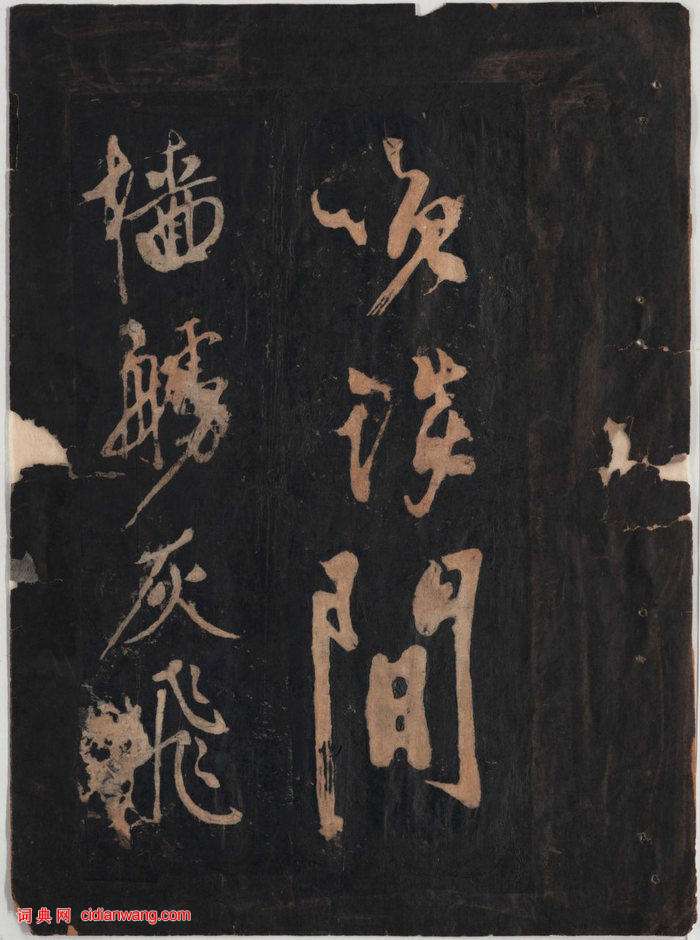 咲談間
檣艣灰飛
词典网 cidianwang.com